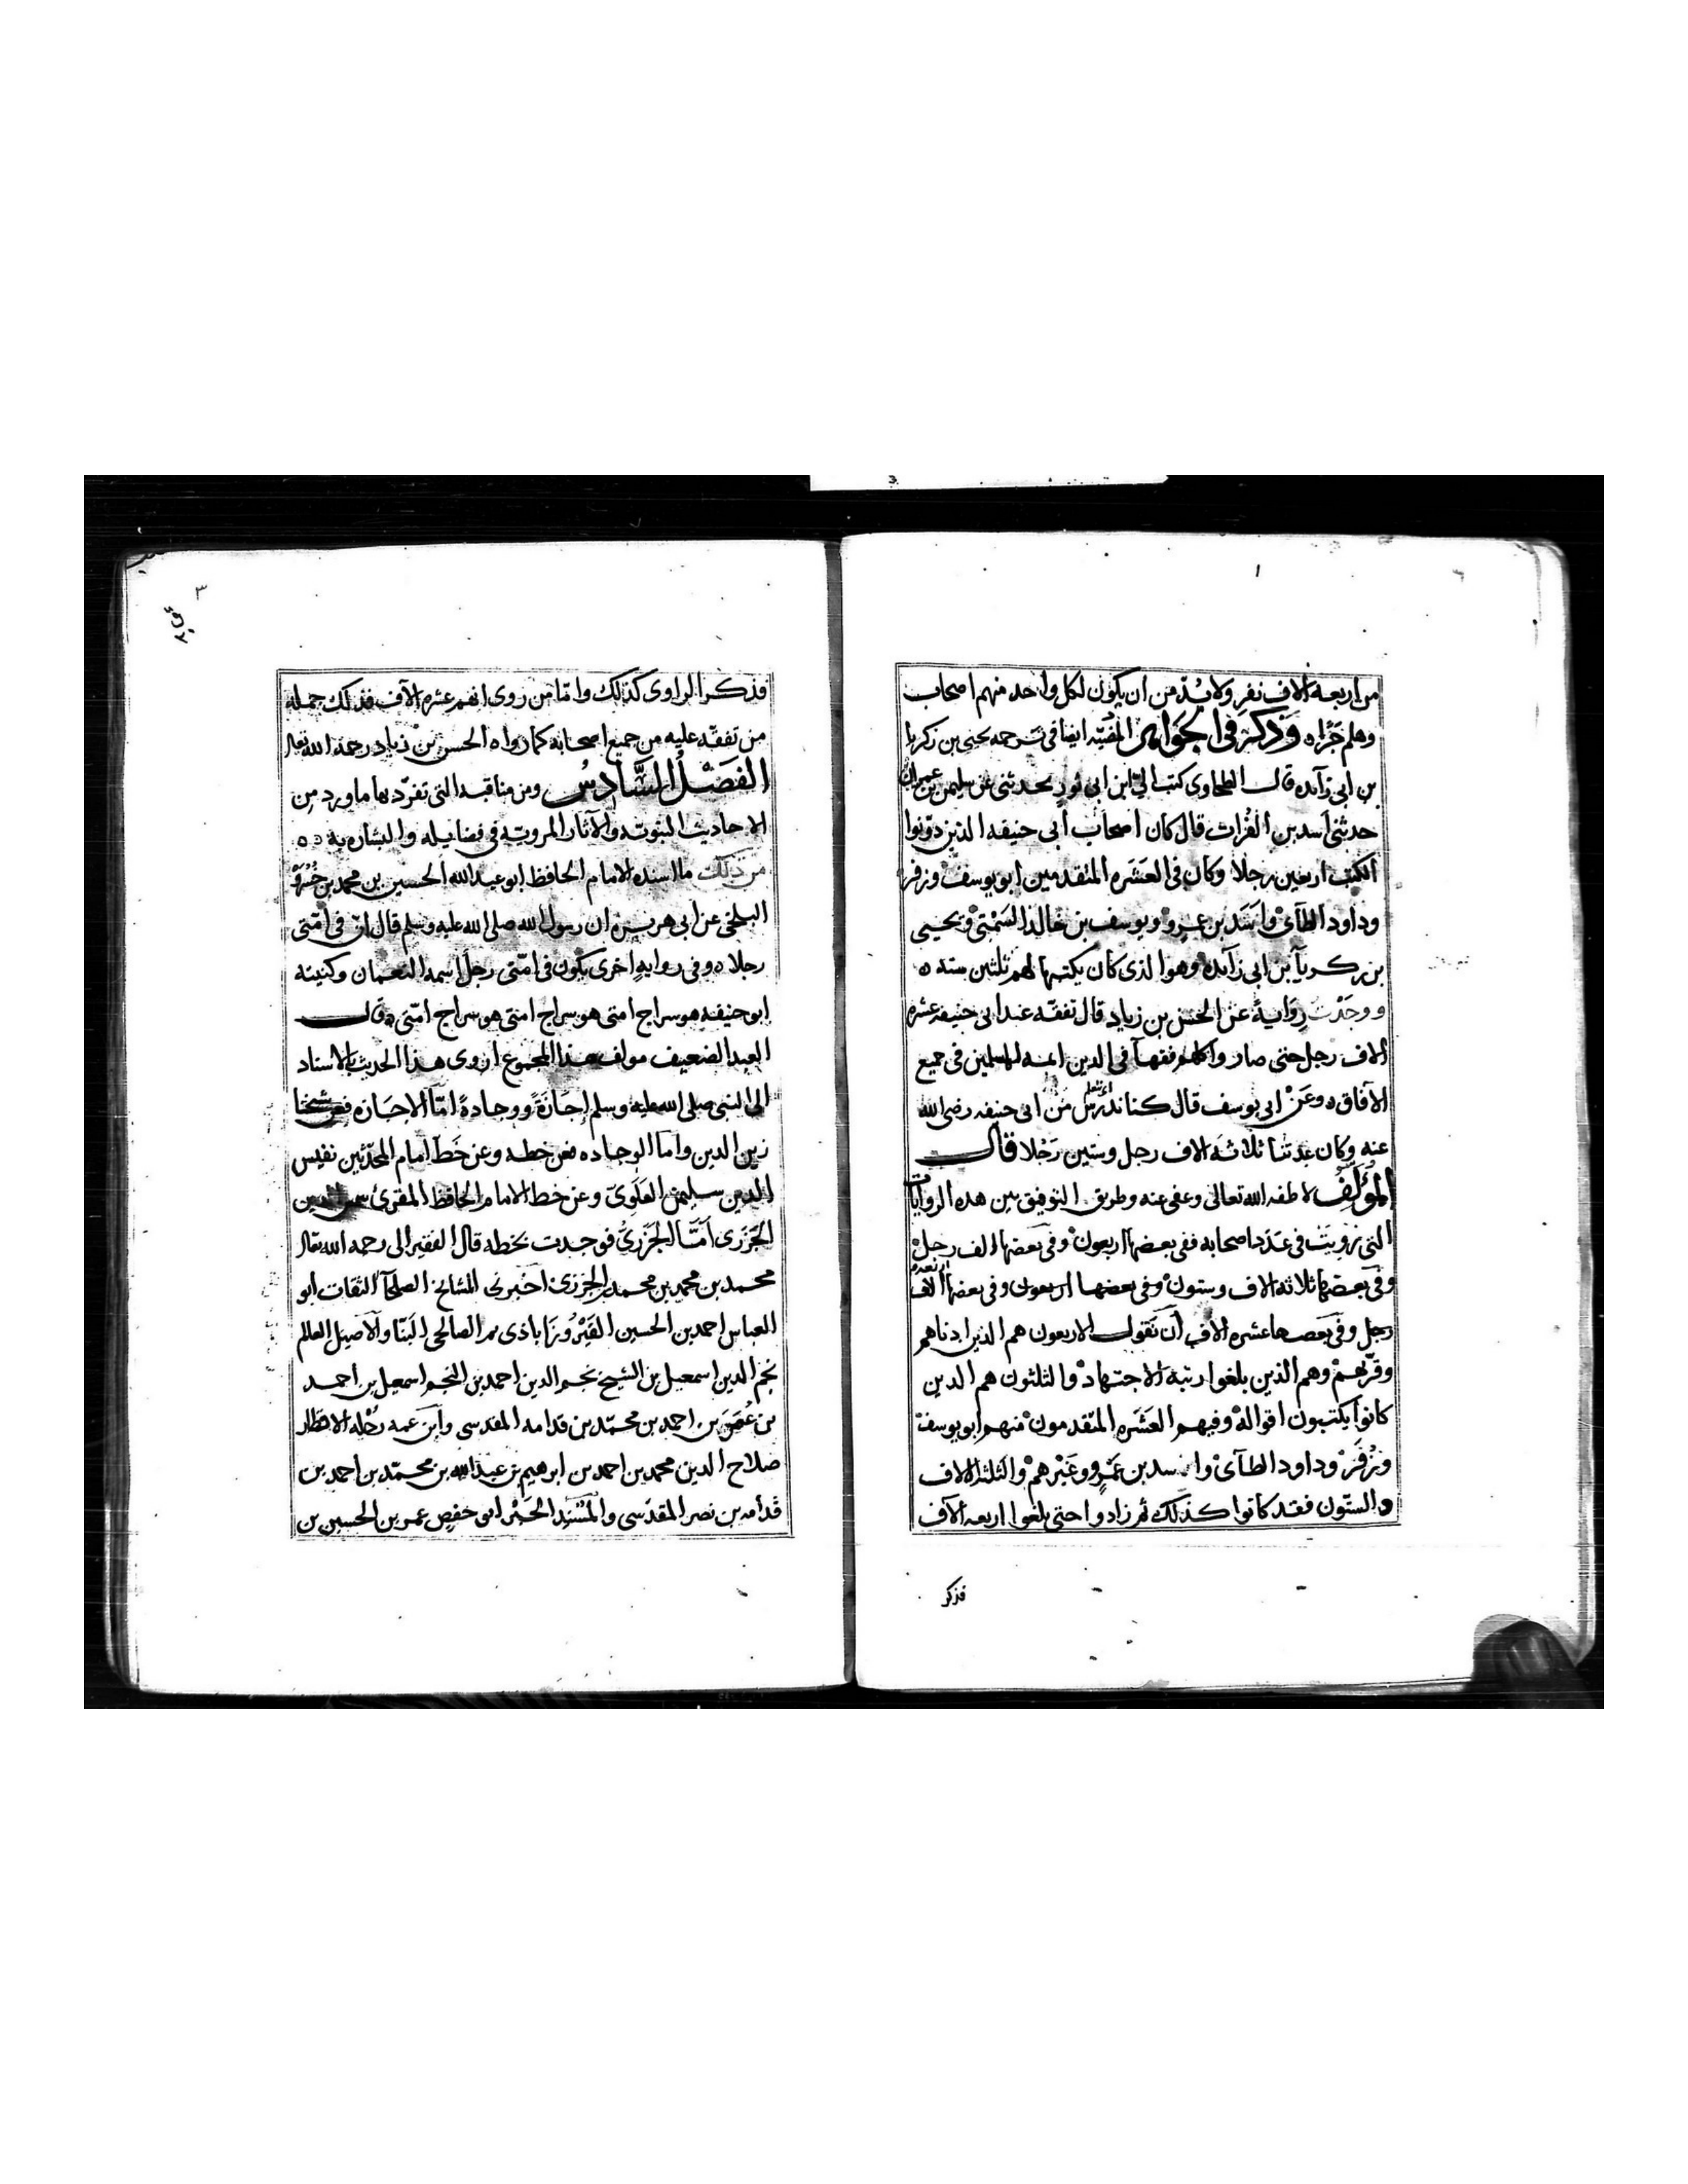 من اربعه الاف نفر ولا بدّ من ان يكون لكل واحد منهم اصحاب
وهلم جرّا ه وذكر فى الجواهر المضيّه ايضا فى ترجمه يحيى بن زكريا
بن ابى زآئده قال الطحاوى كتب الىّ ابن ابى ثور يحدثنى عن سليمن بن عمران
حدثنى اسد بن الفرات قال كان اصحاب ابى حنيفه الذين دوّنوا
الكتب اربعين رجلا وكان فى العشره المتقدمين ابو يوسف وزفر
وداود الطآى واسد بن عمرو ويوسف بن خالد السمتى ويحيى
بن زكريآ بن ابى زآئده وهو الذى كان يكتبها لهم ثلثين سنه ه
ووجدت رواية عن الحسن بن زياد قال تفقه عند ابى حنيفه عشره
الاف رجل حتى صاروا كلهم فقهآ فى الدين ائمه للمسلمين فى جميع
الآفاق ه وعن ابى يوسف قال كنا ندرس من ابى حنيفه رضى الله
عنه وكان عدتنا ثلاثه الاف رجل وستين رجلا قال
المؤلف لاطفه الله تعالى وعفى عنه وطريق التوفيق بين هذه الروايات
التى رويت فى عدد اصحابه ففى بعضها اربعون وفى بعضها الف رجل
وفى بعضها ثلاثه الاف وستون وفى بعضها اربعون وفى بعضها الاف
رجل وفى بعضها عشره الاف ان نقول الاربعون هم الذين ادناهم
وقرّبهم وهم الذين بلغوا رتبه الاجتهاد والثلثون هم الذين
كانوا يكتبون اقواله وفيهم العشره المتقدمون منهم ابو يوسف
وزفر وداود الطآى واسد بن عمرو وغيرهم والثلثه الالاف
والستّون فقد كانوا كذلك ثم زادوا حتى بلغوا اربعه الآف
فذكر
٣
فذكر الراوى كذلك وامّا من روى انهم عشره الآف فذلك جمله
من تفقّه عليه من جميع اصحابه كما رواه الحسن بن زياد رحمه الله تعالى
الفصل السّادس ومن مناقبه التى تفرّد بها ما ورد من
الاحاديث النبوته والآثار المرويّه فى فضايله والبشاره به ه ه
من ذلك ما اسنده الامام الحافظ ابو عبد الله الحسين بن محمد بن خسرو
البلخى عن ابى هريره ان رسول الله صلى الله عليه وسلم قال انّ فى امّتى
رجلا ه وفى روايه اخرى يكون فى امّتى رجل اسمه النعمان وكنيته
ابو حنيفه هو سراج امتى هو سراج امتى هو سراج امّتى ه قال
العبد الضعيف مولف هذا المجموع اروى هذا الحديث بالاسناد
الى النبى صلى الله عليه وسلم اجازة ووجادة امّا الاجازه فعن شيخنا
زين الدين واما الوجاده فعن خطه وعن خط امام المحدّثين نفيس
الدين سليمن العلوىّ وعن خط الامام الحافظ المقرئ شمس الدين
الجزرى امّا الجزرىّ فوجدت بخطه قال الفقير الى رحمه الله تعالى
محمد بن محمد بن محمد بن الجزرى اخبرنى المشايخ الصلحآ الثقات ابو
العباس احمد بن الحسين الفيروزاباذى ثم الصالحى البنّا والاصيل العالم
نجم الدين اسمعيل بن الشيخ نجم الدين احمد بن النجم اسمعيل بن احمد
بن عمر بن احمد بن محمّد بن قدامه المقدسى وابن عمه رُحْله الاقطار
صلاح الدين محمد بن احمد بن ابرهيم بن عبد الله بن محمّد بن احمد بن
قدامه بن نصر المقدسى والمسند الخيّر ابو حفص عمر بن الحسين بن